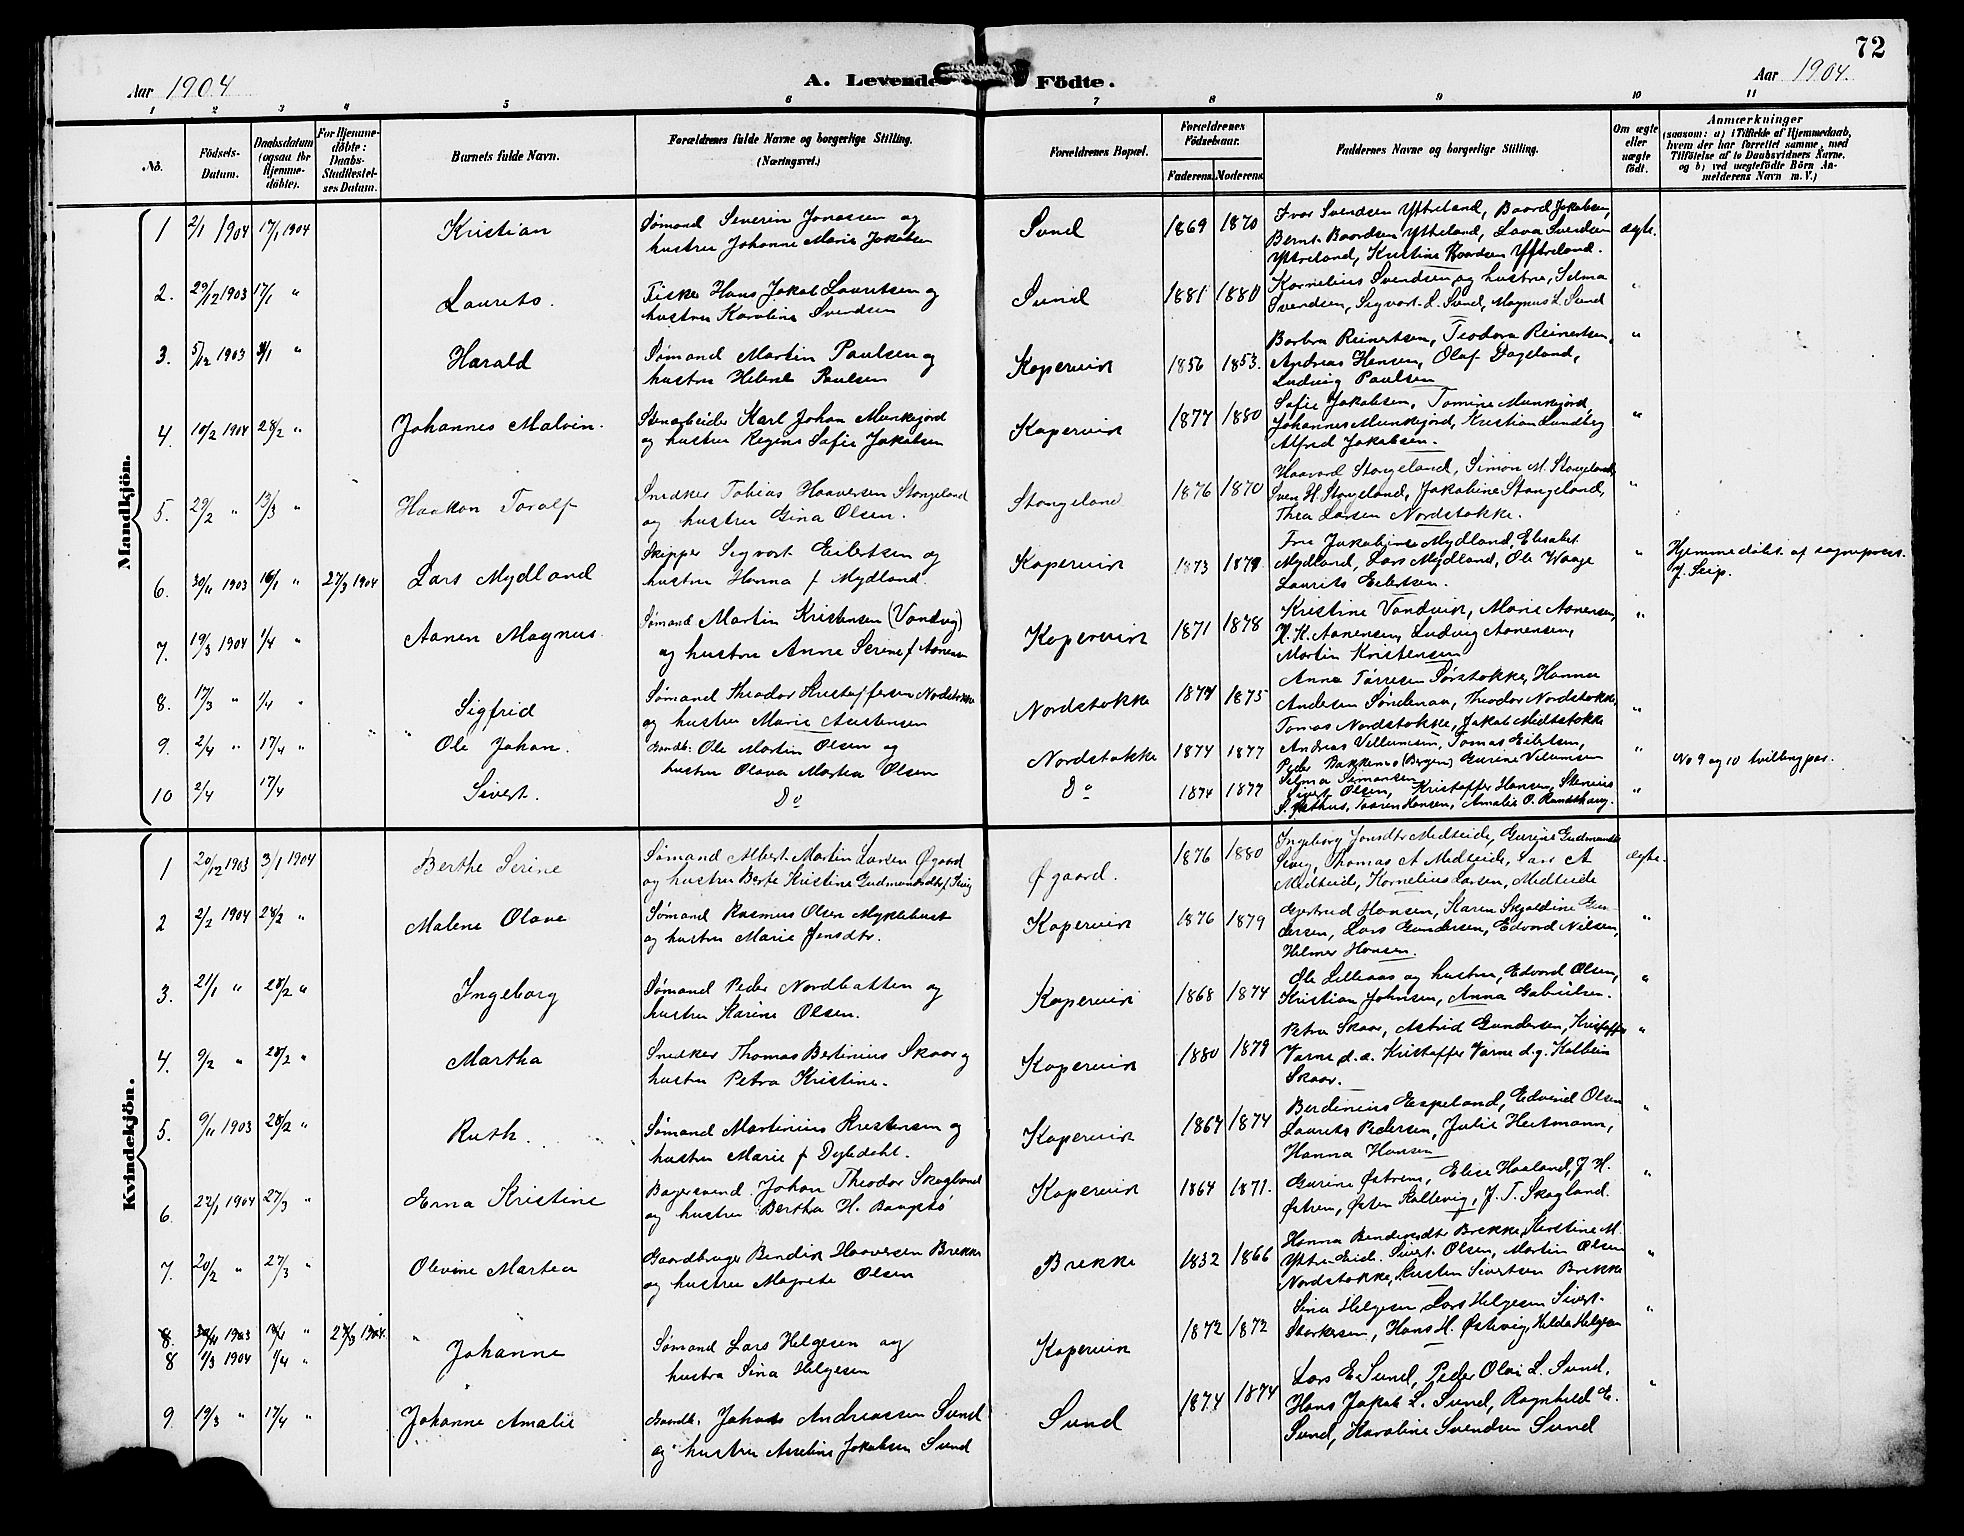 72
Aar 1904
A. Levende Födte.
Aar 1904.
1 2 3 4 5 6 7 8 9 10 11
No. Födsels-Datum. Daabsdatum (ogsaa for Hjemme-döbte). For Hjemme-döbte: Daabs-Stadfæstel-ses Datum. Barnets fulde Navn. Forældrenes fulde Navne og borgerlige Stilling. (Næringsvei.) Forældrenes Bopæl. Forældrenes Födselsaar. Faderens. Moderens. Faddernes Navne og borgerlige Stilling. Om ægte eller uægte födt. Anmærkninger (saasom: a) i Tilfælde af Hjemmedaab, hvem der har forrettet samme, med Tilföielse af to Daabsvidners Navne, og b) ved uægtefödte Börn An-melderens Navn m. V.)
Mandkjön.
1 2/1 1904 17/1 1904 Kristian Sømand Severin Jonassen og
hustru Johanne Marie Jakobsen Sund 1869 1870 Ivar Svendsen Ytreland, Baard Jakobsen,
Bernt Baardsen Ytreland, Lava Svendsen
Ytreland, Kristine Baardsen Yttreland. ægte.
2. 29/12 1903 17/1 " Laurits. Fisker Hans Jakob Lauritsen og
hustru Karoline Svendsen Sund 1881 1880 Kornelius Svendsen og hustru, Selma
Svendsen, Sigvart L. Sund, Magnus L. Sund "
3. 5/12 1903 31/1 " Harald Sømand Martin Paulsen og
hustru Helene Paulsen Kopervik 1856 1853. Barbra Reinertsen, Teodora Reinertsen,
Andreas Hansen, Olaf Dageland,
Ludvig Paulsen "
4. 10/2 1904 28/2 " Johannes Malvin. Stenarbeider Karl Johan Munkejord
og hustru Regine Sofie Jakobsen Kopervik 1877 1880 Sofie Jakobsen, Tomine Munkejord,
Johannes Munkejord, Kristian Lundberg
Alfred Jakobsen. "
5. 29/2 " 13/3 " Haakon Toralf Snedker Tobias Haaversen Stangeland
og hustru Gina Olsen. Stangeland 1876 1870 Haavard Stangeland, Simon M. Stangeland,
Sven H. Stangeland, Jakobine Stangeland,
Thea Larsen Nordstokke. "
6. 30/11 1903 16/1 " 27/3 1904 Lars Mydland Skipper Sigvart Eilertsen og
hustru Hanna f Mydland. Kopervik 1873 1879 Fru Jakobine Mydland, Elisabet
Mydland, Lars Mydland, Ole Waage
Laurits Eilertsen. " Hjemmedøbt af sognepræst
J. Seip.
7. 19/3 1904 1/4 " Aanen Magnus. Sømand Martin Kristensen (Vandvig)
og hustru Anne Serine f Aanensen Kopervik 1871 1878 Kristine Vandvik, Marie Aanensen,
K. K. Aanensen, Ludvig Aanensen,
Martin Kristensen "
8. 17/3 " 1/4 " Sigfrid Sømand Theodor Kristoffersen Nordstokke
og hustru Marie Austensen Nordstokke 1874 1875 Anna Tørresen Sørstokke, Hanna
Andersen Søndenaa, Theodor Nordstokke,
Tomas Nordstokke, Jakob Midtstokke "
9. 2/4 " 17/4 " Ole Johan. Gaardb. Ole Martin Olsen og
hustru Olava Martea Olsen Nordstokke 1874 1877 Andreas Villumsen, Tomas Eilertsen,
Peder Bakkemo (Bergen) Gurine Villumsen
Selma Simonsen " No 9 og 10 tvillingpar.
10 2/4 17/4 Sivert. Do Do 1874 1877 Sivert Olsen, Kristoffer Hansen, Stenius
Hansen, Amalie O. "
Kvindekjön.
1 20/12 1903 3/1 1904 Berthe Serine Sømand Albert Martin Larsen Øgaard
og hustru Berte Kristine Gudmundsdtr f Sevig Øgaard. 1876 1880 Ingeborg Jonsdtr Midteide, Gurine Gudmundsdtr
Sevig, Thomas A Midteide, Lars A
Midteide, Kornelius Larsen, Midteide ægte.
2 2/2 1904 28/2 " Malene Olave Sømand Rasmus Olsen Myklebust
og hustru Marie Jensdtr. Kopervik 1876 1879 Gjertrud Hansen, Karen Skjoldine Gun-
dersen, Lars Gundersen, Edvard Nilsen,
Helmer Hansen. "
3. 21/1 " 28/2 " Ingeborg Sømand Peder Nordbatten og
hustru Karine Olsen. Kopervik 1868 1874 Ole Lilleaas og hustru, Edvard Olsen,
Kristian Johnsen, Anna Gabrielsen. "
4. 9/2 " 28/2 " Martha Snedker Thomas Bertinius Skaar og
hustru Petra Kristine. Kopervik 1880 1879 Petra Skaar, Astrid Gundersen, Kristoffer
Varne d.æ. Kristoffer Varne d.y. Kolbein
Skaar. "
5. 9/11 1903 28/2 " Ruth. Sømand Martinius Kristensen og
hustru Marie f Dybdahl. Kopervik 1864 1874 Berdinius Espeland, Edvind Olsen
Laurits Pedersen, Julie Heitmann,
Hanna Hansen "
6. 22/1 1904 27/3 " Erna Kristine Bagersvend. Johan Theodor Skogland
og hustru Bertha H. Baugstø Kopervik 1864 1871. Gurine Østrem, Elise Haaland, J. H.
Østrem, Østen Saltevig, J. T. Skogland. "
7. 20/2 " 27/3 " Olevine Martea Gaardbruger Bendik Haaversen Brekke
og hustru Magrete Olsen Brekke 1832 1866 Hanna Bendiksdtr Brekke, Kirstine M.
Ytre Eide. Sivert Olsen, Martin Olsen
Nordstokke, Kristen Sivertsen Brekke "
8. 30/11 1903 16/1 " 27/3 1904. "
8 1/3 1904 1/4 " Johanne Sømand Lars Helgesen og
hustru Sina Helgesen Kopervik 1872 1872 Sina Helgesen, Lars Helgesen Sivert
Storkersen, Hans H. Østevig, Hilda Helgesen "
9. 19/3 " 17/4 " Johanne Amalie Gaardb. Johans Andreassen Sund
og hustru Asseline Jakobsen Sund Sund 1874 1874 Lars E Sund, Peder Olai L. Sund,
Hans Jakob L. Sund, Ragnhild E.
Sund, Karoline Svendsen Sund "